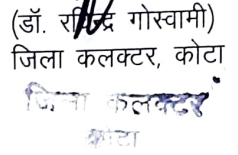 (डॉ. रविन्द्र गोस्वामी)
जिला कलक्टर, कोटा
जिला कलक्टर
कोटा